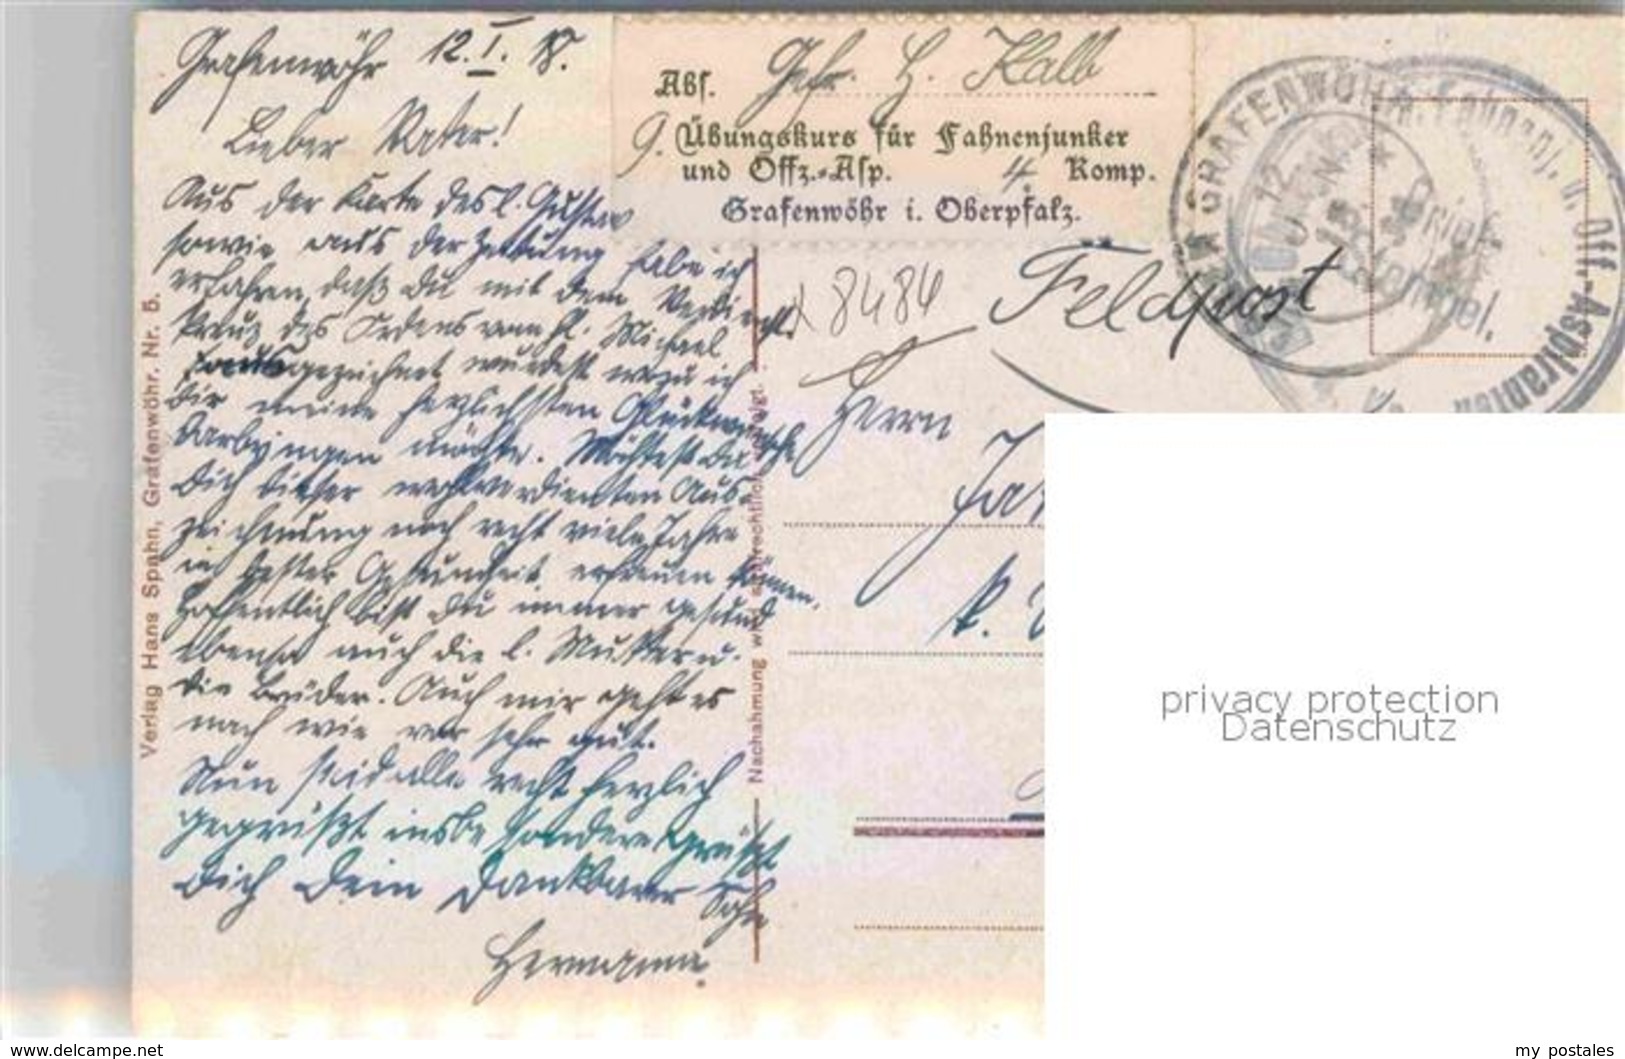 Grafenwöhr 12. I. 18.
Lieber Vater!
Aus der Karte des l. Gustav
sowie aus der Zeitung habe ich
erfahren, daß Du mit dem Verdienst-
kreuz des Ordens vom hl. Michael
ausgezeichnet wurdest wozu ich
Dir meine herzlichsten Glückwünsche
darbringen möchte. Möchtest Du
Dich dieser wohlverdienten Aus-
zeichnung noch recht viele Jahre
in bester Gesundheit erfreuen können.
Hoffentlich bist Du immer gesund
ebenso auch die l. Mutter u.
die Brüder. Auch mir geht es
nach wie vor sehr gut.
Nun seid alle recht herzlich
gegrüßt insbesondere grüßt
Dich Dein dankbarer Sohn
Hermann.
Abs. Gefr. H. Kalb
9. Übungskurs für Fahnenjunker
und Offz.-Asp. 4. Komp.
Grafenwöhr i. Oberpfalz.
GRAFENWÖHR
12
Fahnenj. u. Off.-Aspiranten
Brief-
stempel.
8484
Feldpost
Herrn
k.
Verlag Hans Spahn, Grafenwöhr. Nr. 5.
Nachahmung wird strafrechtlich verfolgt.
privacy protection
Datenschutz
www.delcampe.net
my postales